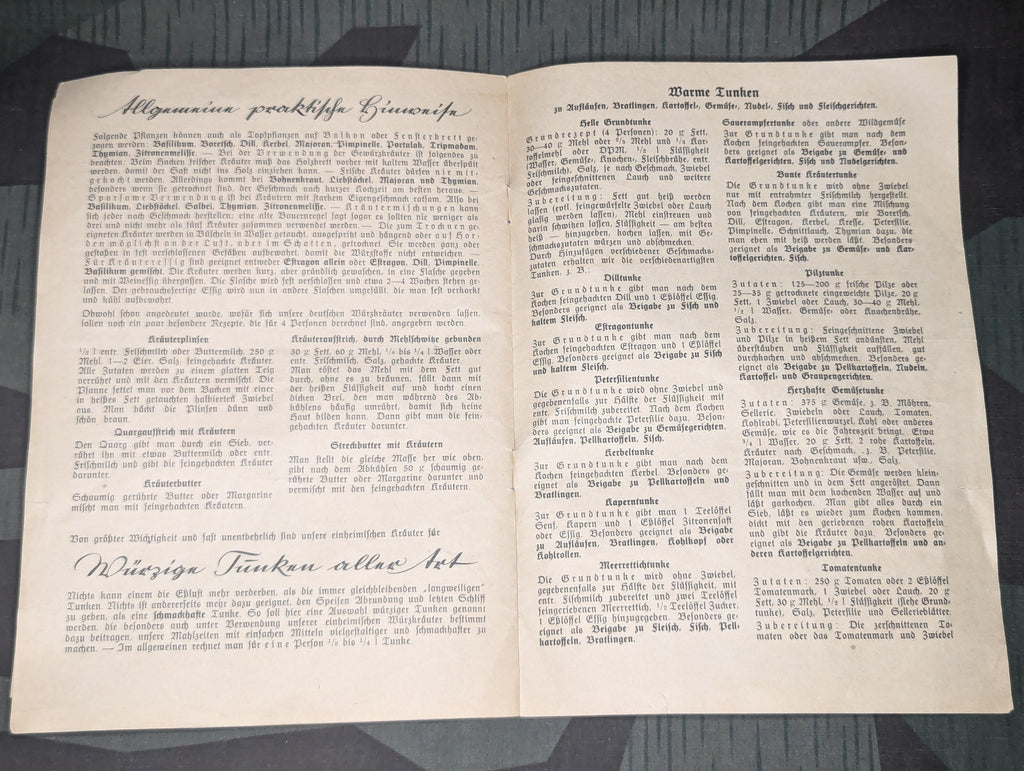 Allgemeine praktische Hinweise
Folgende Pflanzen können auch als Topfpflanzen auf Balkon oder Fensterbrett ge-
zogen werden: Basilikum, Boretsch, Dill, Kerbel, Majoran, Pimpinelle, Portulak, Tripmadam,
Thymian, Zitronenmelisse. — Bei der Verwendung der Gewürzkräuter ist folgendes zu
beachten: Beim Kochen frischer Kräuter muß das Holzbrett vorher mit kaltem Wasser überspült
werden, damit der Saft nicht ins Holz einziehen kann. — Frische Kräuter dürfen nie mit-
gekocht werden. Allerdings kommt bei Bohnenkraut, Liebstöckel, Majoran und Thymian,
besonders wenn sie getrocknet sind, der Geschmack nach kurzer Kochzeit am besten heraus. —
Sparsame Verwendung ist bei Kräutern mit starkem Eigengeschmack ratsam. Also bei
Basilikum, Liebstöckel, Salbei, Thymian, Zitronenmelisse. — Kräutermischungen kann
sich jeder nach Geschmack herstellen; eine alte Bauernregel sagt sogar es sollten nie weniger als
drei und nicht mehr als fünf Kräuter zusammen verwendet werden. — Die zum Trocknen ge-
eigneten Kräuter werden in Büscheln in Wasser getaucht, ausgesprüht und hängend oder auf Hor-
den möglichst an der Luft, aber im Schatten, getrocknet. Sie werden ganz oder
gestoßen in fest verschlossenen Gefäßen aufbewahrt, damit die Würzstoffe nicht entweichen. —
Für Kräuteressig sind geeignet entweder Estragon allein oder Estragon, Dill, Pimpinelle,
Basilikum gemischt. Die Kräuter werden kurz, aber gründlich gewaschen, in eine Flasche gegeben
und mit Weinessig übergossen. Die Flasche wird fest verschlossen und etwa 2—4 Wochen stehen ge-
lassen. Der gebrauchsfertige Essig wird nun in andere Flaschen umgefüllt, die man fest verkorkt
und kühl aufbewahrt.
Obwohl schon angedeutet wurde, wofür sich unsere deutschen Würzkräuter verwenden lassen,
sollen noch ein paar besondere Rezepte, die für 4 Personen berechnet sind, angegeben werden.
Kräuterplinsen
½ l entr. Frischmilch oder Buttermilch, 250 g
Mehl, 1—2 Eier, Salz, feingehackte Kräuter.
Alle Zutaten werden zu einem glatten Teig
verrührt und mit den Kräutern vermischt. Die
Pfanne fettet man vor dem Backen mit einer
in heißes Fett getauchten halbierten Zwiebel
aus. Man bäckt die Plinsen dünn und
schön braun.
Quargaufstrich mit Kräutern
Den Quarg gibt man durch ein Sieb, ver-
rührt ihn mit etwas Buttermilch oder entr.
Frischmilch und gibt die feingehackten Kräuter
darunter.
Kräuterbutter
Schaumig gerührte Butter oder Margarine
mischt man mit feingehackten Kräutern.
Kräuteraufstrich, durch Mehlschwitze gebunden
30 g Fett, 60 g Mehl, ⅛ bis ¼ l Wasser oder
entr. Frischmilch, Salz, gehackte Kräuter.
Man röstet das Mehl mit dem Fett gut
durch, ohne es zu bräunen, füllt dann mit
der heißen Flüssigkeit auf und kocht einen
dicken Brei, den man während des Ab-
kühlens häufig umrührt, damit sich keine
Haut bilden kann. Dann gibt man die fein-
gehackten Kräuter darunter.
Streckbutter mit Kräutern
Man stellt die gleiche Masse her wie oben,
gibt nach dem Abkühlen 50 g schaumig ge-
rührte Butter oder Margarine darunter und
vermischt mit den feingehackten Kräutern.
Von größter Wichtigkeit und fast unentbehrlich sind unsere einheimischen Kräuter für
Würzige Tunken aller Art
Nichts kann einem die Eßlust mehr verderben, als die immer gleichbleibenden „langweiligen"
Tunken. Nichts ist andererseits mehr dazu geeignet, den Speisen Abrundung und letzten Schliff
zu geben, als eine schmackhafte Tunke. So soll hier eine Auswahl würziger Tunken genannt
werden, die besonders auch unter Verwendung unserer einheimischen Würzkräuter bestimmt
dazu beitragen, unsere Mahlzeiten mit einfachen Mitteln vielgestaltiger und schmackhafter zu
machen. — Im allgemeinen rechnet man für eine Person ⅛ bis ¼ l Tunke.
Warme Tunken
zu Aufläufen, Bratlingen, Kartoffel-, Gemüse-, Nudel-, Fisch und Fleischgerichten.
Helle Grundtunke
Grundrezept (4 Personen): 20 g Fett,
30—40 g Mehl oder ⅔ Mehl und ⅓ Kar-
toffelmehl oder DPM, ½ l Flüssigkeit
(Wasser, Gemüse-, Knochen-, Fleischbrühe, entr.
Frischmilch), Salz, je nach Geschmack, Zwiebel
oder feingeschnittenen Lauch und weitere
Geschmackszutaten.
Zubereitung: Fett gut heiß werden
lassen (evtl. feingewürfelte Zwiebel oder Lauch
darin schwitzen lassen), Mehl einstreuen und
glasig werden lassen, Flüssigkeit — am besten
heiß — hinzugeben, kochen lassen, mit Ge-
schmackszutaten würzen und abschmecken.
Durch Hinzufügen verschiedener Geschmacks-
zutaten erhalten wir die verschiedenartigsten
Tunken, z. B.:
Dilltunke
Zur Grundtunke gibt man nach dem
Kochen feingehackten Dill und 1 Eßlöffel Essig.
Besonders geeignet als Beigabe zu Fisch und
kaltem Fleisch.
Estragontunke
Zur Grundtunke gibt man nach dem
Kochen feingehackten Estragon und 1 Eßlöffel
Essig. Besonders geeignet als Beigabe zu Fisch
und kaltem Fleisch.
Petersilientunke
Die Grundtunke wird ohne Zwiebel und
gegebenenfalls zur Hälfte der Flüssigkeit mit
entr. Frischmilch zubereitet. Nach dem Kochen
gibt man feingehackte Petersilie dazu. Beson-
ders geeignet als Beigabe zu Gemüsegerichten,
Aufläufen, Pellkartoffeln, Fisch.
Kerbeltunke
Zur Grundtunke gibt man nach dem
Kochen feingehackten Kerbel. Besonders ge-
eignet als Beigabe zu Pellkartoffeln und
Bratlingen.
Kaperntunke
Zur Grundtunke gibt man 1 Teelöffel
Senf, Kapern und 1 Eßlöffel Zitronensaft
oder Essig. Besonders geeignet als Beigabe
zu Aufläufen, Bratlingen, Kohlkopf oder
Kohlrollen.
Meerrettichtunke
Die Grundtunke wird ohne Zwiebel,
gegebenenfalls zur Hälfte der Flüssigkeit, mit
entr. Frischmilch zubereitet und zwei Teelöffel
feingeriebenen Meerrettich, ½ Teelöffel Zucker,
1 Eßlöffel Essig hinzugegeben. Besonders ge-
eignet als Beigabe zu Fleisch, Fisch, Pell-
kartoffeln, Bratlingen.
Sauerampfertunke oder andere Wildgemüse
Zur Grundtunke gibt man nach dem
Kochen feingehackten Sauerampfer. Beson-
ders geeignet als Beigabe zu Gemüse- und
Kartoffelgerichten, Fisch und Nudelgerichten.
Bunte Kräutertunke
Die Grundtunke wird ohne Zwiebel
nur mit entrahmter Frischmilch hergestellt.
Nach dem Kochen gibt man eine Mischung
von feingehackten Kräutern, wie Boretsch,
Dill, Estragon, Kerbel, Kresse, Petersilie,
Pimpinelle, Schnittlauch, Thymian dazu, die
man eben mit heiß werden läßt. Besonders
geeignet als Beigabe zu Gemüse- und Kar-
toffelgerichten, Fisch.
Pilztunke
Zutaten: 125—200 g frische Pilze oder
25—35 g getrocknete eingeweichte Pilze, 20 g
Fett, 1 Zwiebel oder Lauch, 30—40 g Mehl,
½ l Wasser, Gemüse- oder Knochenbrühe,
Salz.
Zubereitung: Feingeschnittene Zwiebel
und Pilze in heißem Fett andünsten, Mehl
überstäuben und Flüssigkeit auffüllen, gut
durchkochen und abschmecken. Besonders ge-
eignet als Beigabe zu Pellkartoffeln, Nudeln,
Kartoffel- und Graupengerichten.
Herzhafte Gemüsetunke
Zutaten: 375 g Gemüse, z. B. Möhren,
Sellerie, Zwiebeln oder Lauch, Tomaten,
Kohlrabi, Petersilienwurzel, Kohl oder anderes
Gemüse, wie es die Jahreszeit bringt. Etwa
¾ l Wasser, 20 g Fett, 2 rohe Kartoffeln,
Kräuter nach Geschmack, z. B. Petersilie,
Majoran, Bohnenkraut usw., Salz.
Zubereitung: Die Gemüse werden klein-
geschnitten und in dem Fett angeröstet. Dann
füllt man mit dem kochenden Wasser auf und
läßt garkochen. Man gibt alles durch ein
Sieb, läßt es wieder zum Kochen kommen,
dickt mit den geriebenen rohen Kartoffeln
und gibt die Kräuter dazu. Besonders ge-
eignet als Beigabe zu Pellkartoffeln und an-
deren Kartoffelgerichten.
Tomatentunke
Zutaten: 250 g Tomaten oder 2 Eßlöffel
Tomatenmark, 1 Zwiebel oder Lauch, 20 g
Fett, 30 g Mehl, ½ l Flüssigkeit (siehe Grund-
tunke), Salz, Petersilie und Sellerieblätter.
Zubereitung: Die zerschnittenen To-
maten oder das Tomatenmark und Zwiebel